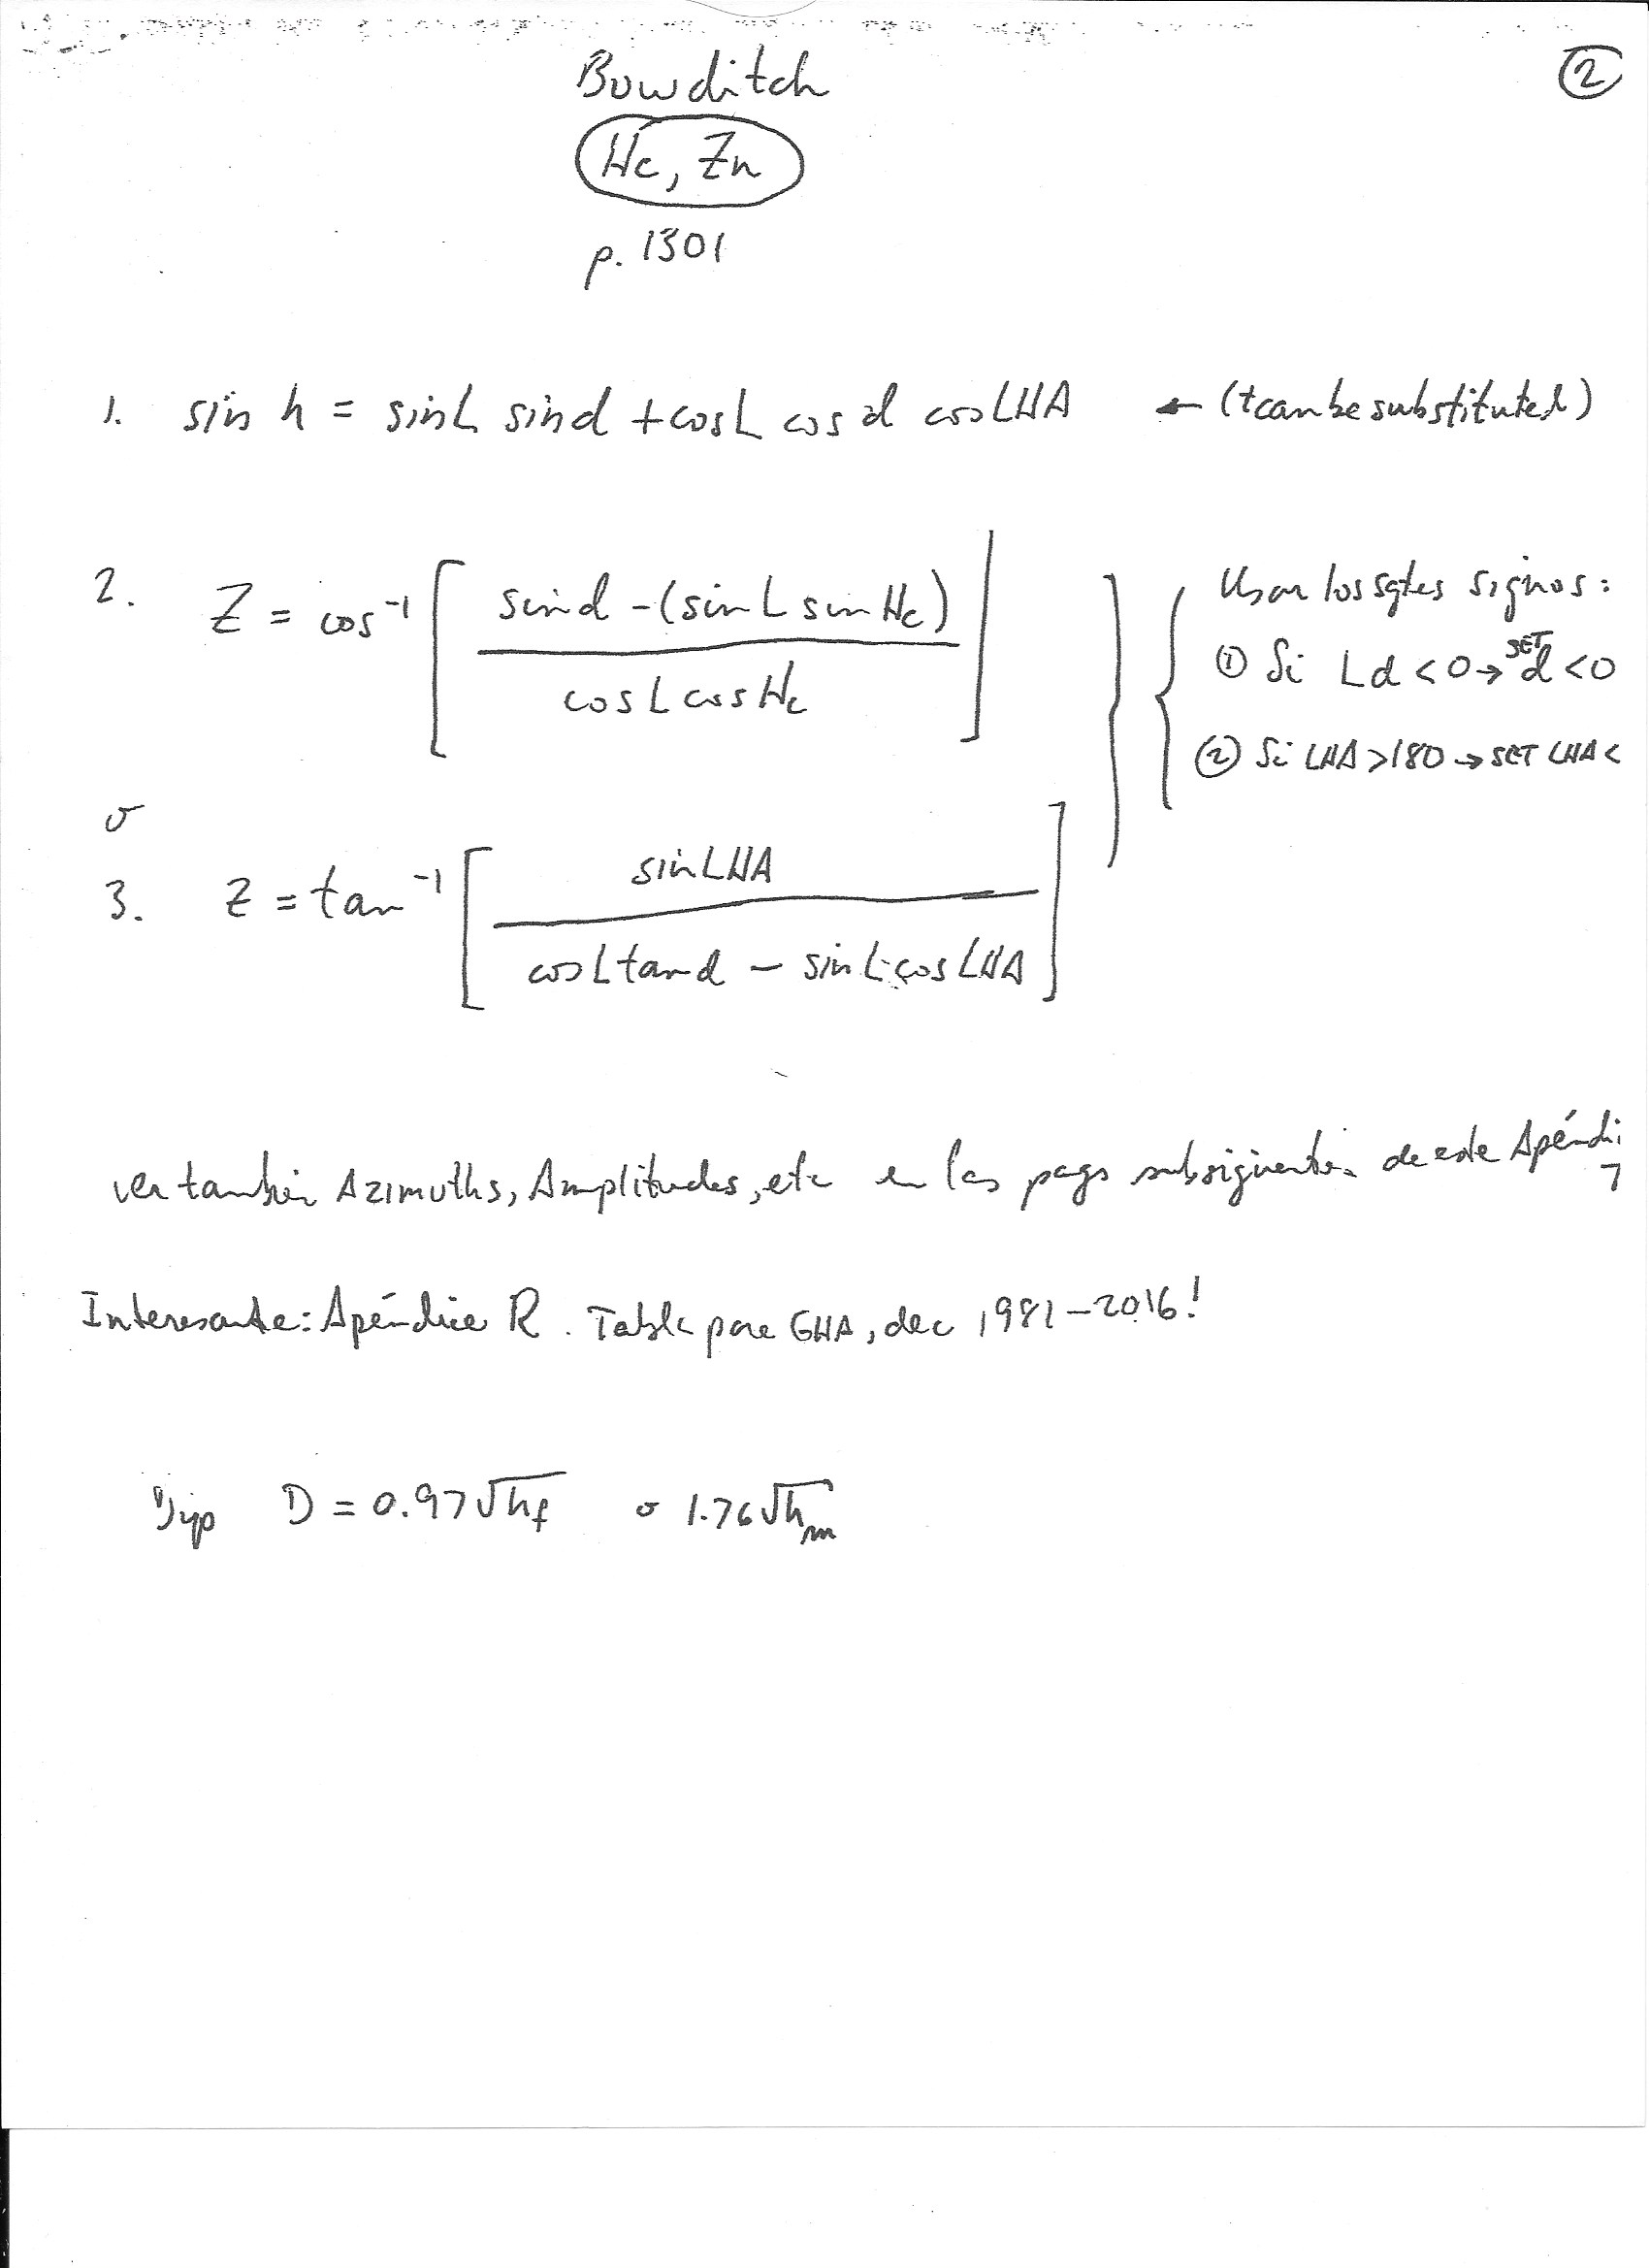 Bowditch
②
Hc, Zn
p. 1301
1. sin h = sin L sin d + cos L cos d cos LHA ← (t can be substituted)
2. Z = cos⁻¹ [ sin d - (sin L sin Hc) / cos L cos Hc ]
Usar los sgtes signos:
① Si Ld < 0 → SET d < 0
② Si LHA > 180 → SET LHA <
o
3. Z = tan⁻¹ [ sin LHA / cos L tan d - sin L cos LHA ]
ver también Azimuths, Amplitudes, etc en las pags subsiguientes de este Apéndi
Interesante: Apéndice R. Table para GHA, dec 1981-2016!
Dip D = 0.97√hf o 1.76√hm